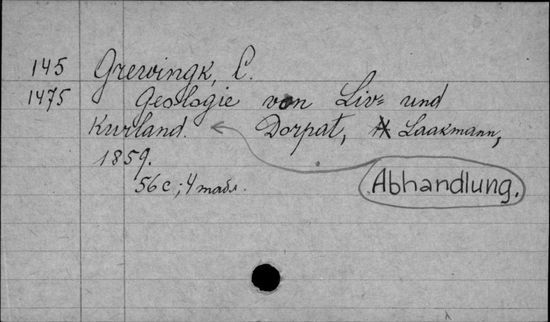 145 Grewingk, C.
1475 Geologie von Liv= und
Kurland. Dorpat, Laakmann,
1859.
56 с; 4 табл.
Abhandlung.